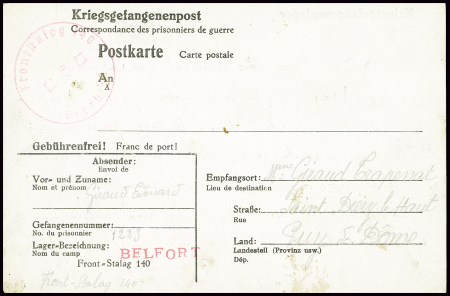 Kriegsgefangenenpost
Correspondance des prisonniers de guerre
Postkarte Carte postale
An
A
Gebührenfrei! Franc de port!
Absender:
Envoi de
Vor- und Zuname:
Nom et prénom
Giraud Edouard
Gefangenennummer:
No. du prisonnier
1223
Lager-Bezeichnung:
Nom du camp
BELFORT
Front-Stalag 140
Front-Stalag 140
Empfangsort: Mme Giraud
Lieu de destination
Straße: Saint le Haut
Rue
Land: Puy de Dôme
Landesteil (Provinz usw.)
Dép.